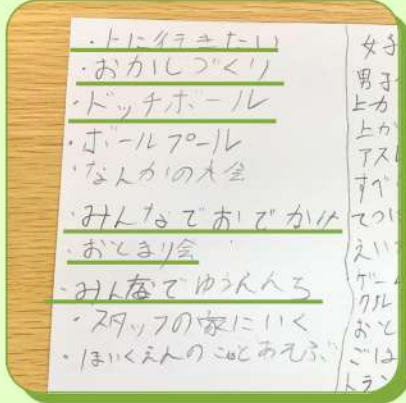 ・上に行きたい
・おかしづくり
・ドッチボール
・ボールプール
・なんかの大会
・みんなでおでかけ
・おとまり会
・みんなでゆうえんち
・スタッフの家にいく
・ほいくえんのことあそぶ
女子
男子
上か
上が
アス
すべ
てつ
えい
ゲーム
クル
おと
ごは
トラン